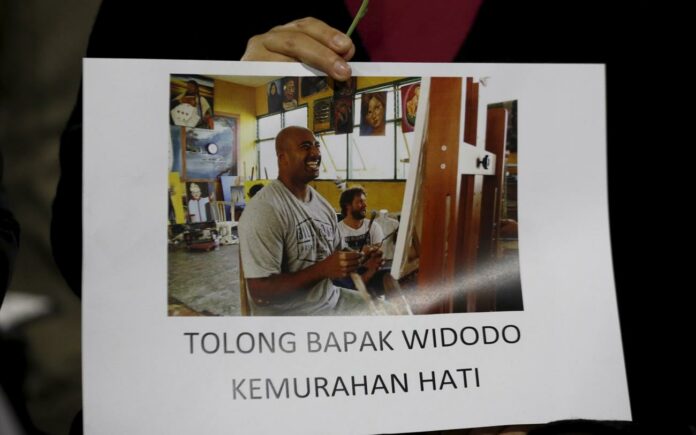 TOLONG BAPAK WIDODO
KEMURAHAN HATI